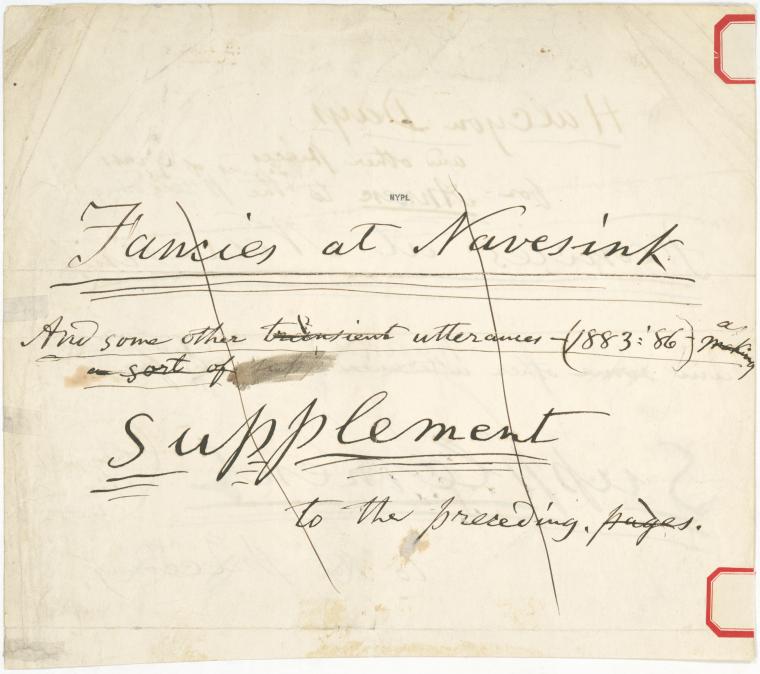 NYPL
Fancies at Navesink
And some other transient utterances – (1883:'86) – as making
a sort of
Supplement
to the preceding. pages.